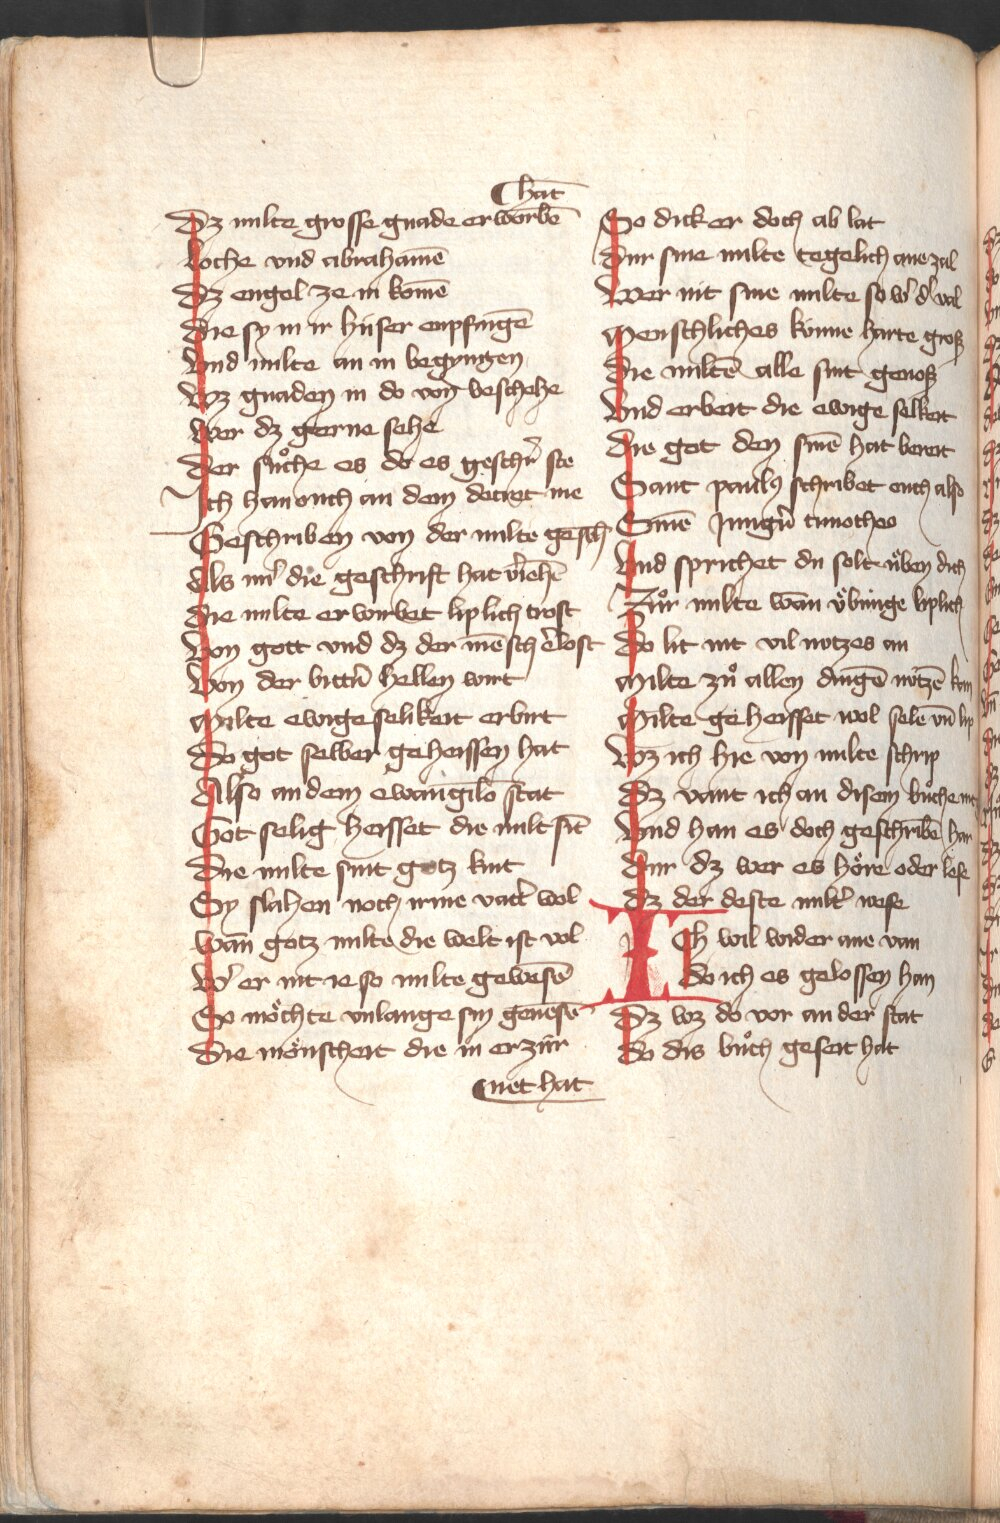 hat
Dz milte grosse gnade erworbē
Loche vnd abrahamē
Dz engel ze in komē
Die sy in ir hüser enpfingē
Vnd milte an in begyngen
Wz gnaden in do von beschehe
Wer dz gerne sehe
Der sůche es do es geschr̄ ste
Ich han ouch an dem decret me
Geschriben von der milte gesch
Als mir die geschrift hat v̄iehē
Die milte erwirbet liplich trost
Von gott vnd dz der mēsch erlost
Von der bittr̄n hellen wirt
Milte ewige selikeit erbirt
Do got selber geheissen hat
Also an dem ewangilo stat
Got selig heisset die milt sīt
Die milte sint gotz kint
Sy slahen noch irme vatr̄ wol
Wan gotz milte die welt ist vol
Wr̄ er nit ie so milte gewesē
So möchte vnlange sin genesē
Die mönscheit die in erzür
net hat
So dick er doch ab lat
Dur sine milte tegelich ane zal
Wer nit sine milte so wr̄ dr̄ val
Menschliches künne harte groß
Die miltē alle sint genoß
Vnd erbeit die ewige selkeit
Die got den sinē hat bereit
Sant paulꝰ schribet ouch also
Sinē Jungr̄n timotheo
Vnd sprichet du solt üben dich
Zůr milte wan übunge liplich
Do lit nit vil nutzes an
Milte zů allen dingē nützē kan
Milte geheisset wol sele vn̄ lip
Wz ich hie von milte schrip
Dz vant ich an disem bůche nit
Vnd han es doch geschribē har
Dur dz wer es höre oder lese
Dz der deste miltr̄ wese
Ich wil wider ane van
Do ich es gelossen han
Dz wz do vor an der stat
Do dis bůch geseit hat